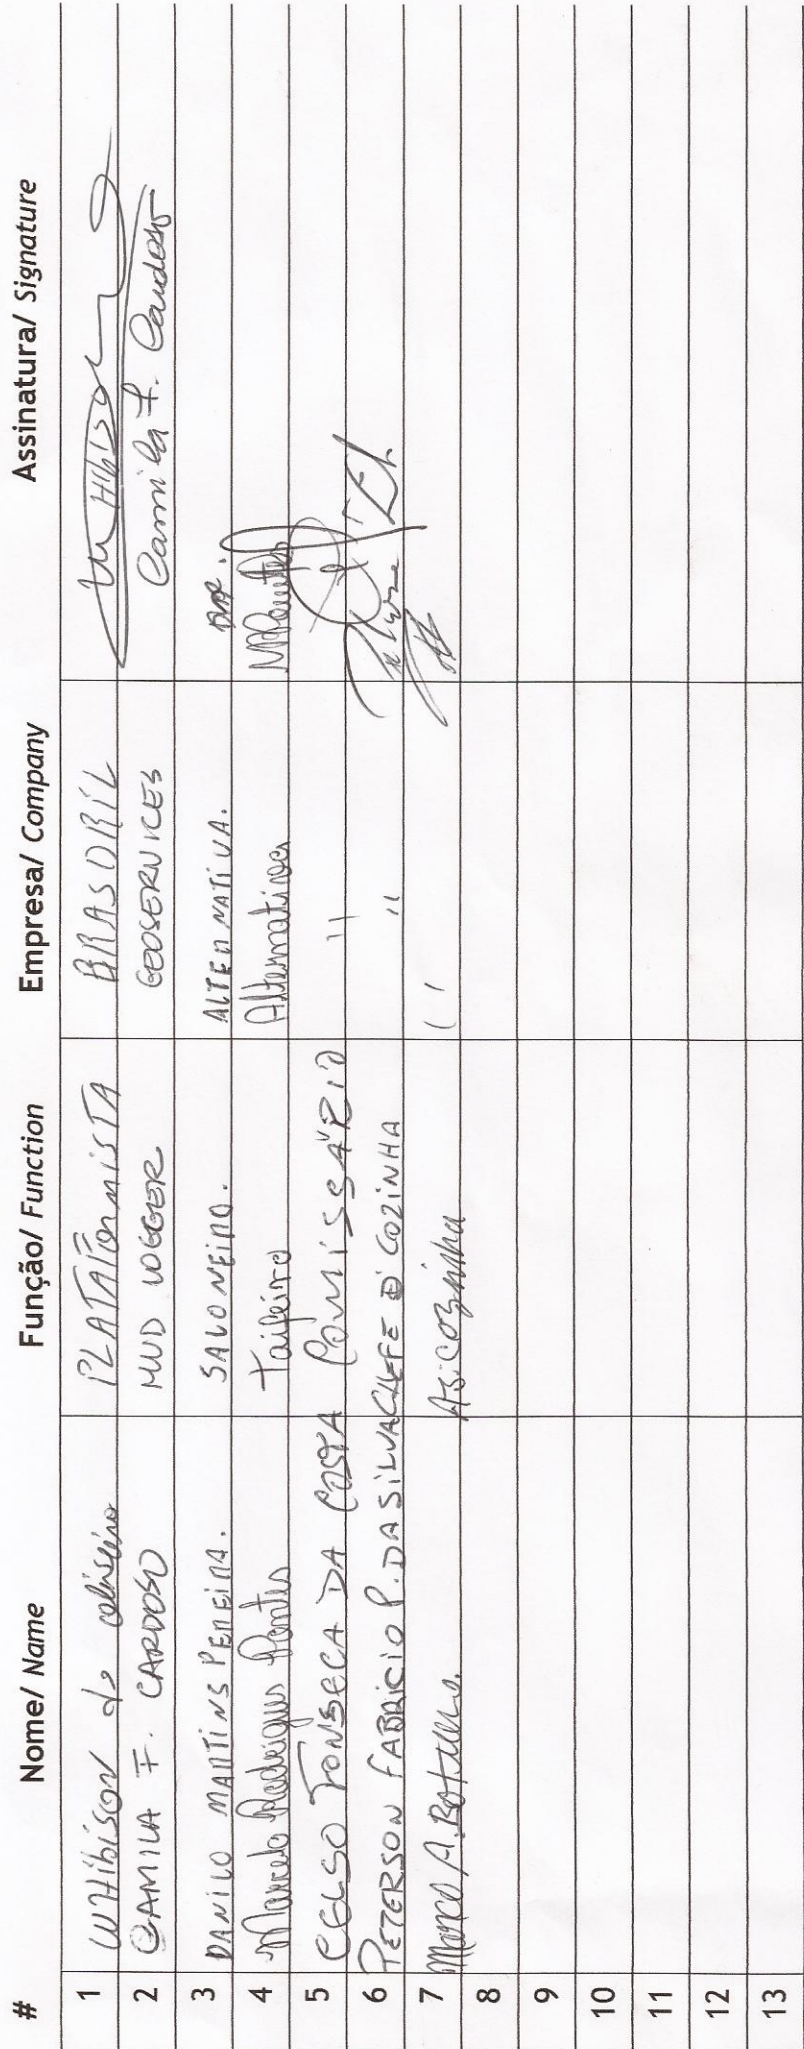 # Nome/ Name Função/ Function Empresa/ Company Assinatura/ Signature
1 Whibison de oliveira PLATAFORMISTA BRASDRIL
2 CAMILA F. CARDOSO MUD LOGGER GEOSERVICES Camila F. Cardoso
3 DANILO MARTINS PEREIRA. SALONEIRO. ALTERNATIVA.
4 Marcelo Rodrigues Pontes Taifeiro Alternativa
5 CELSO FONSECA DA COSTA COMISSÁRIO "
6 PETERSON FABRICIO P. DA SILVA CHEFE D' COZINHA "
7 A. As. cozinha "
8
9
10
11
12
13